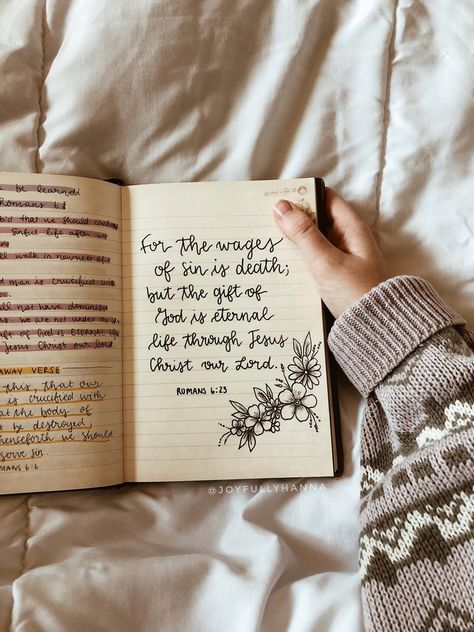 be learned
Romans 6
that we should
sinful life
walk in newness of
man is crucified
not have dominion
we are not under
gift of God is eternal
Jesus Christ our Lord.
AWAY VERSE
this, that our
is crucified with
at the body of
be destroyed,
henceforth we should
serve sin
MANS 6:6
For the wages
of sin is death;
but the gift of
God is eternal
life through Jesus
Christ our Lord.
ROMANS 6:23
@JOYFULLYHANNA